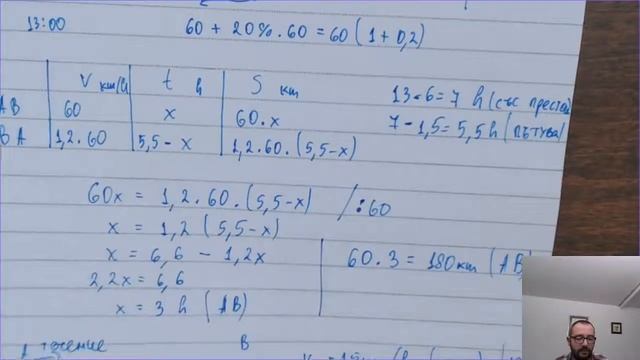 13:00
60 + 20%.60 = 60 (1 + 0,2)
V км/h t h S км
AB 60 x 60.x
BA 1,2.60 5,5-x 1,2.60.(5,5-x)
13-6=7 h (със престоя
7-1,5=5,5h (пътува
60x = 1,2.60.(5,5-x) /:60
x = 1,2 (5,5-x)
x = 6,6 - 1,2x
2,2x = 6,6
x = 3 h (AB)
60.3 = 180 км (AB)
течение B